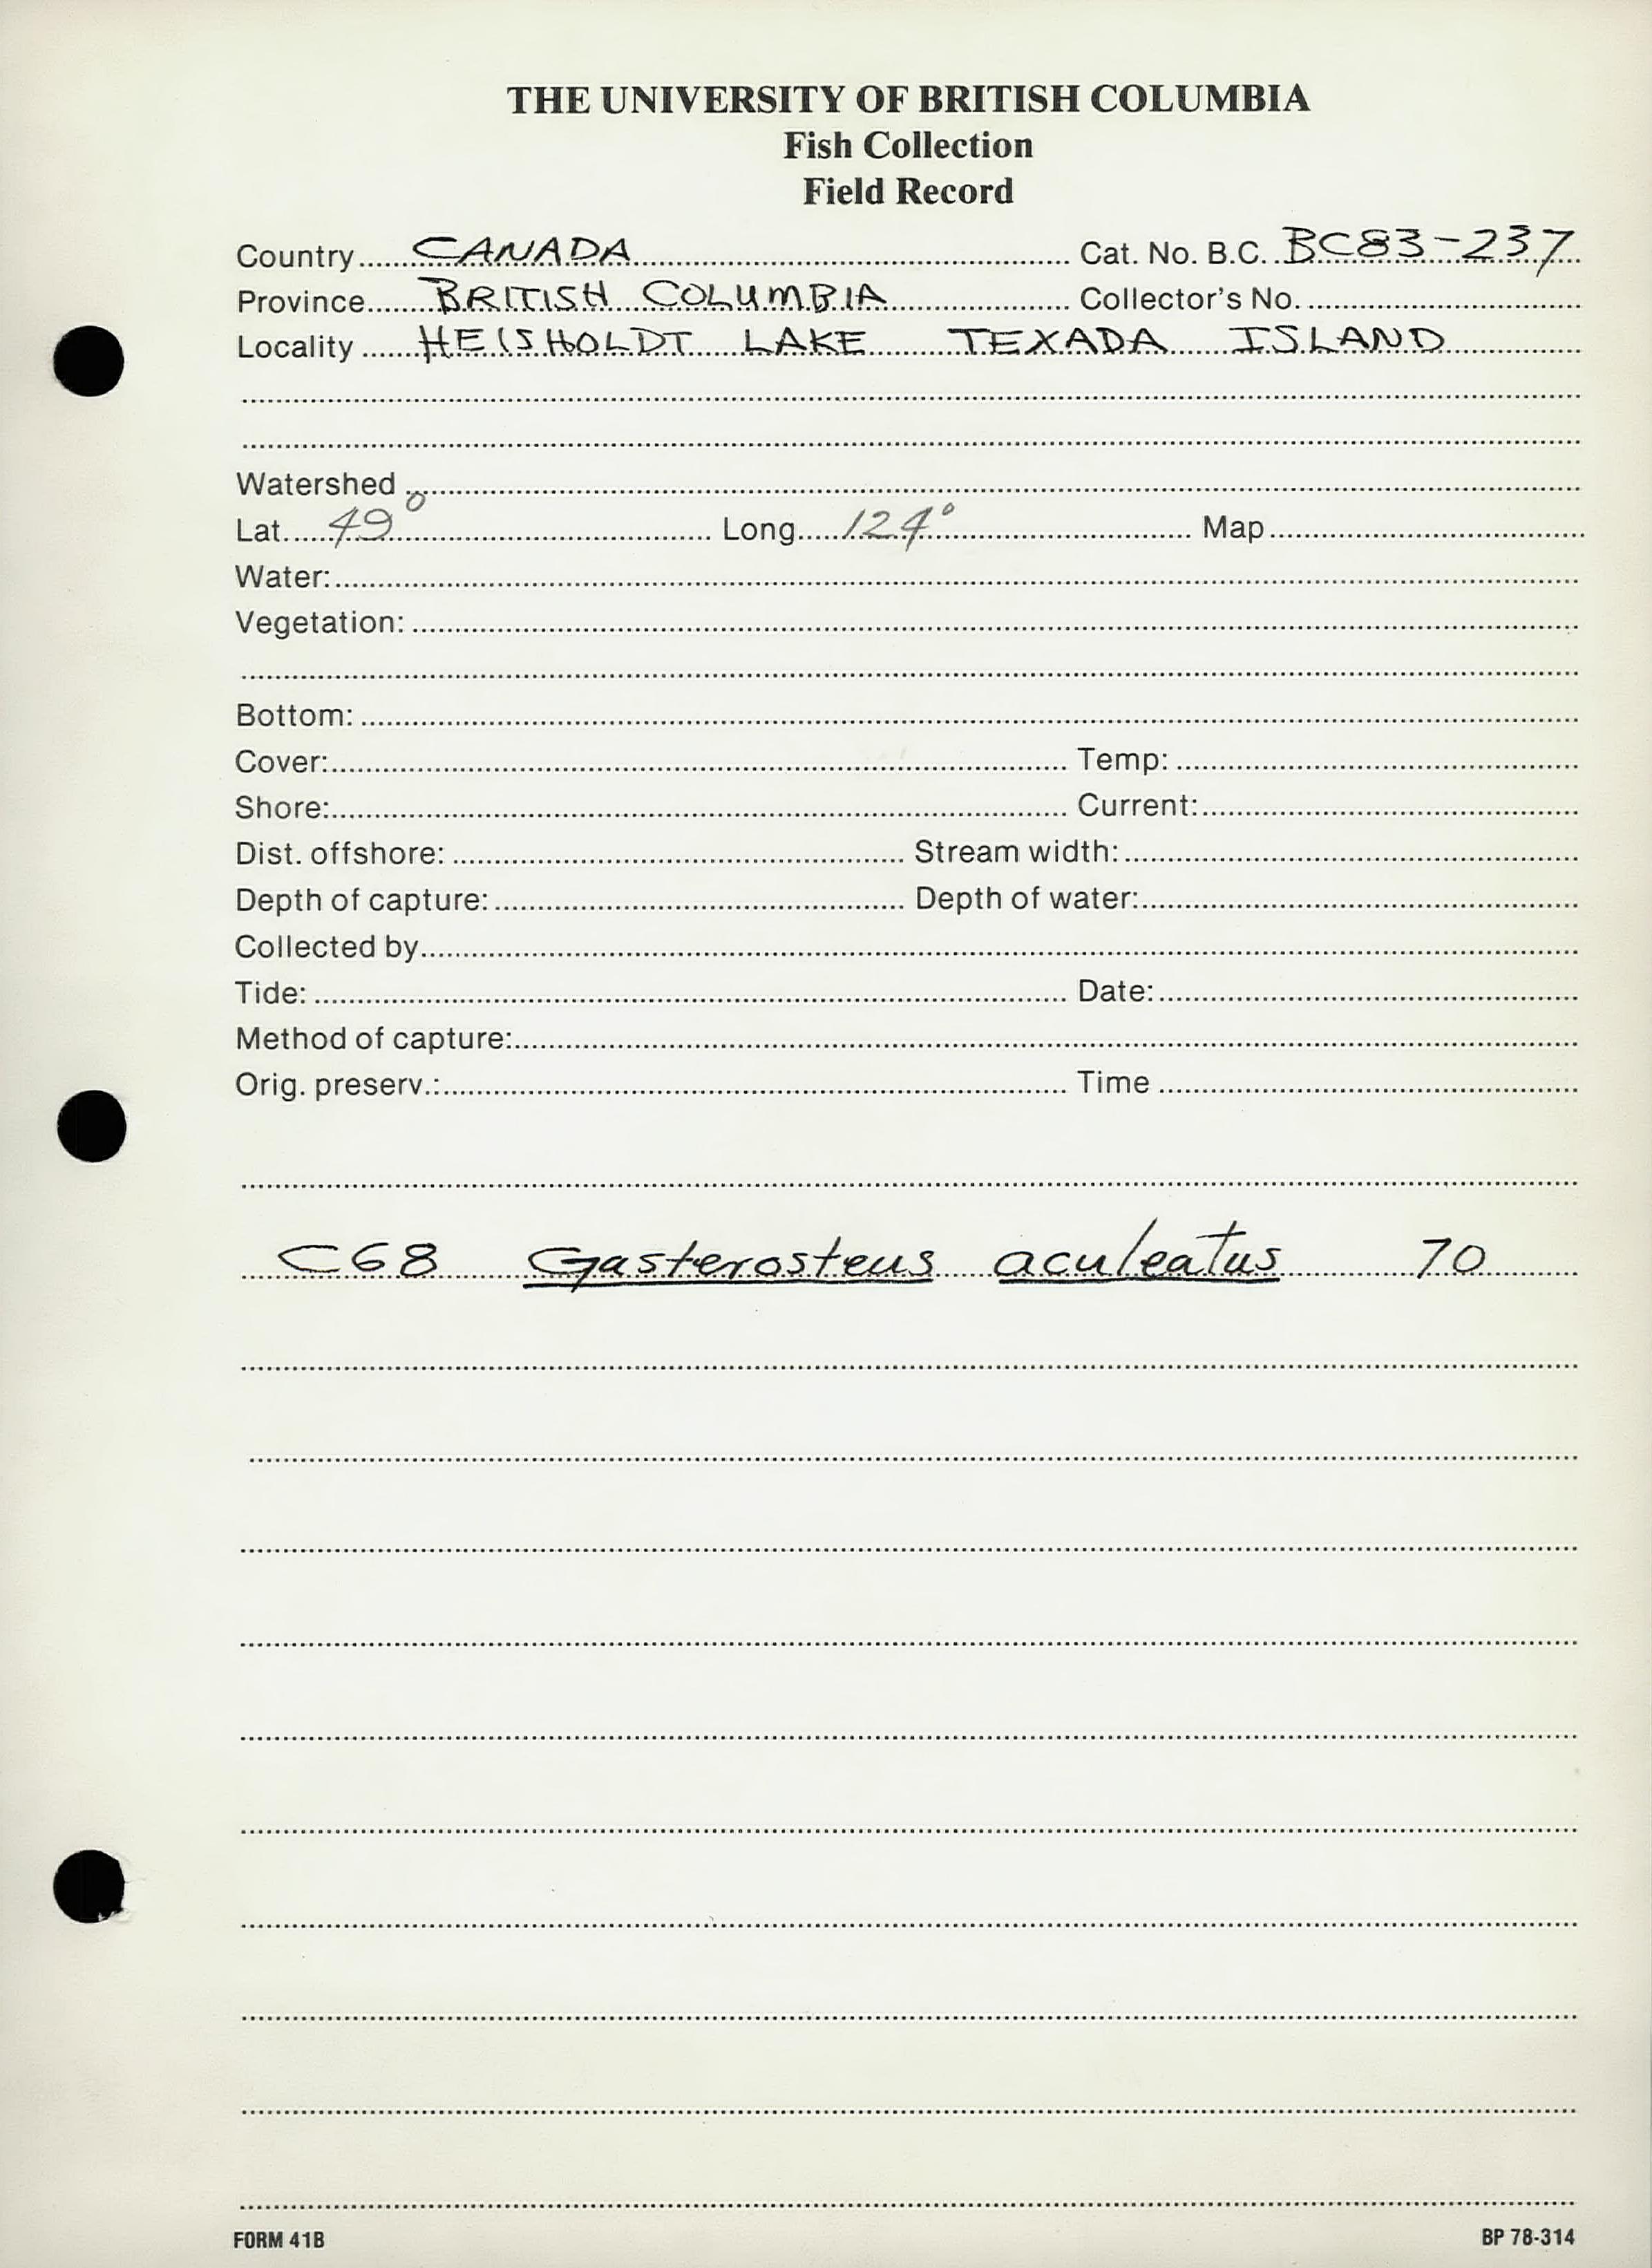 THE UNIVERSITY OF BRITISH COLUMBIA
Fish Collection
Field Record
Country CANADA Cat. No. B.C. BC83-237
Province BRITISH COLUMBIA Collector's No.
Locality HEISHOLDT LAKE TEXADA ISLAND
Watershed
Lat. 49° Long. 124° Map
Water:
Vegetation:
Bottom:
Cover: Temp:
Shore: Current:
Dist. offshore: Stream width:
Depth of capture: Depth of water:
Collected by
Tide: Date:
Method of capture:
Orig. preserv.: Time
C68 Gasterosteus aculeatus 70
FORM 41B BP 78-314